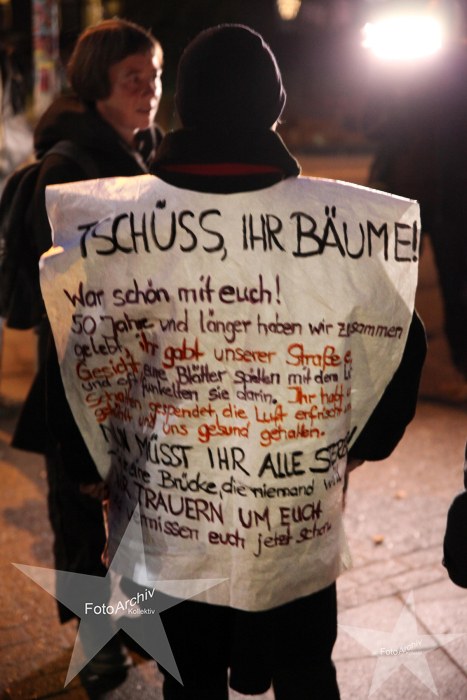 TSCHÜSS, IHR BÄUME!
War schön mit euch!
50 Jahre und länger haben wir zusammen
gelebt, ihr gabt unserer Straße
Gesicht, eure Blätter spielten mit dem
und oft funkelten sie darin. Ihr habt
Schatten gespendet, die Luft erfrischt
gekühlt und uns gesund gehalten.
NUN MÜSST IHR ALLE
eine Brücke, die niemand
TRAUERN UM EUCH
vermissen euch jetzt schon
FotoArchiv
Kollektiv
FotoArchiv